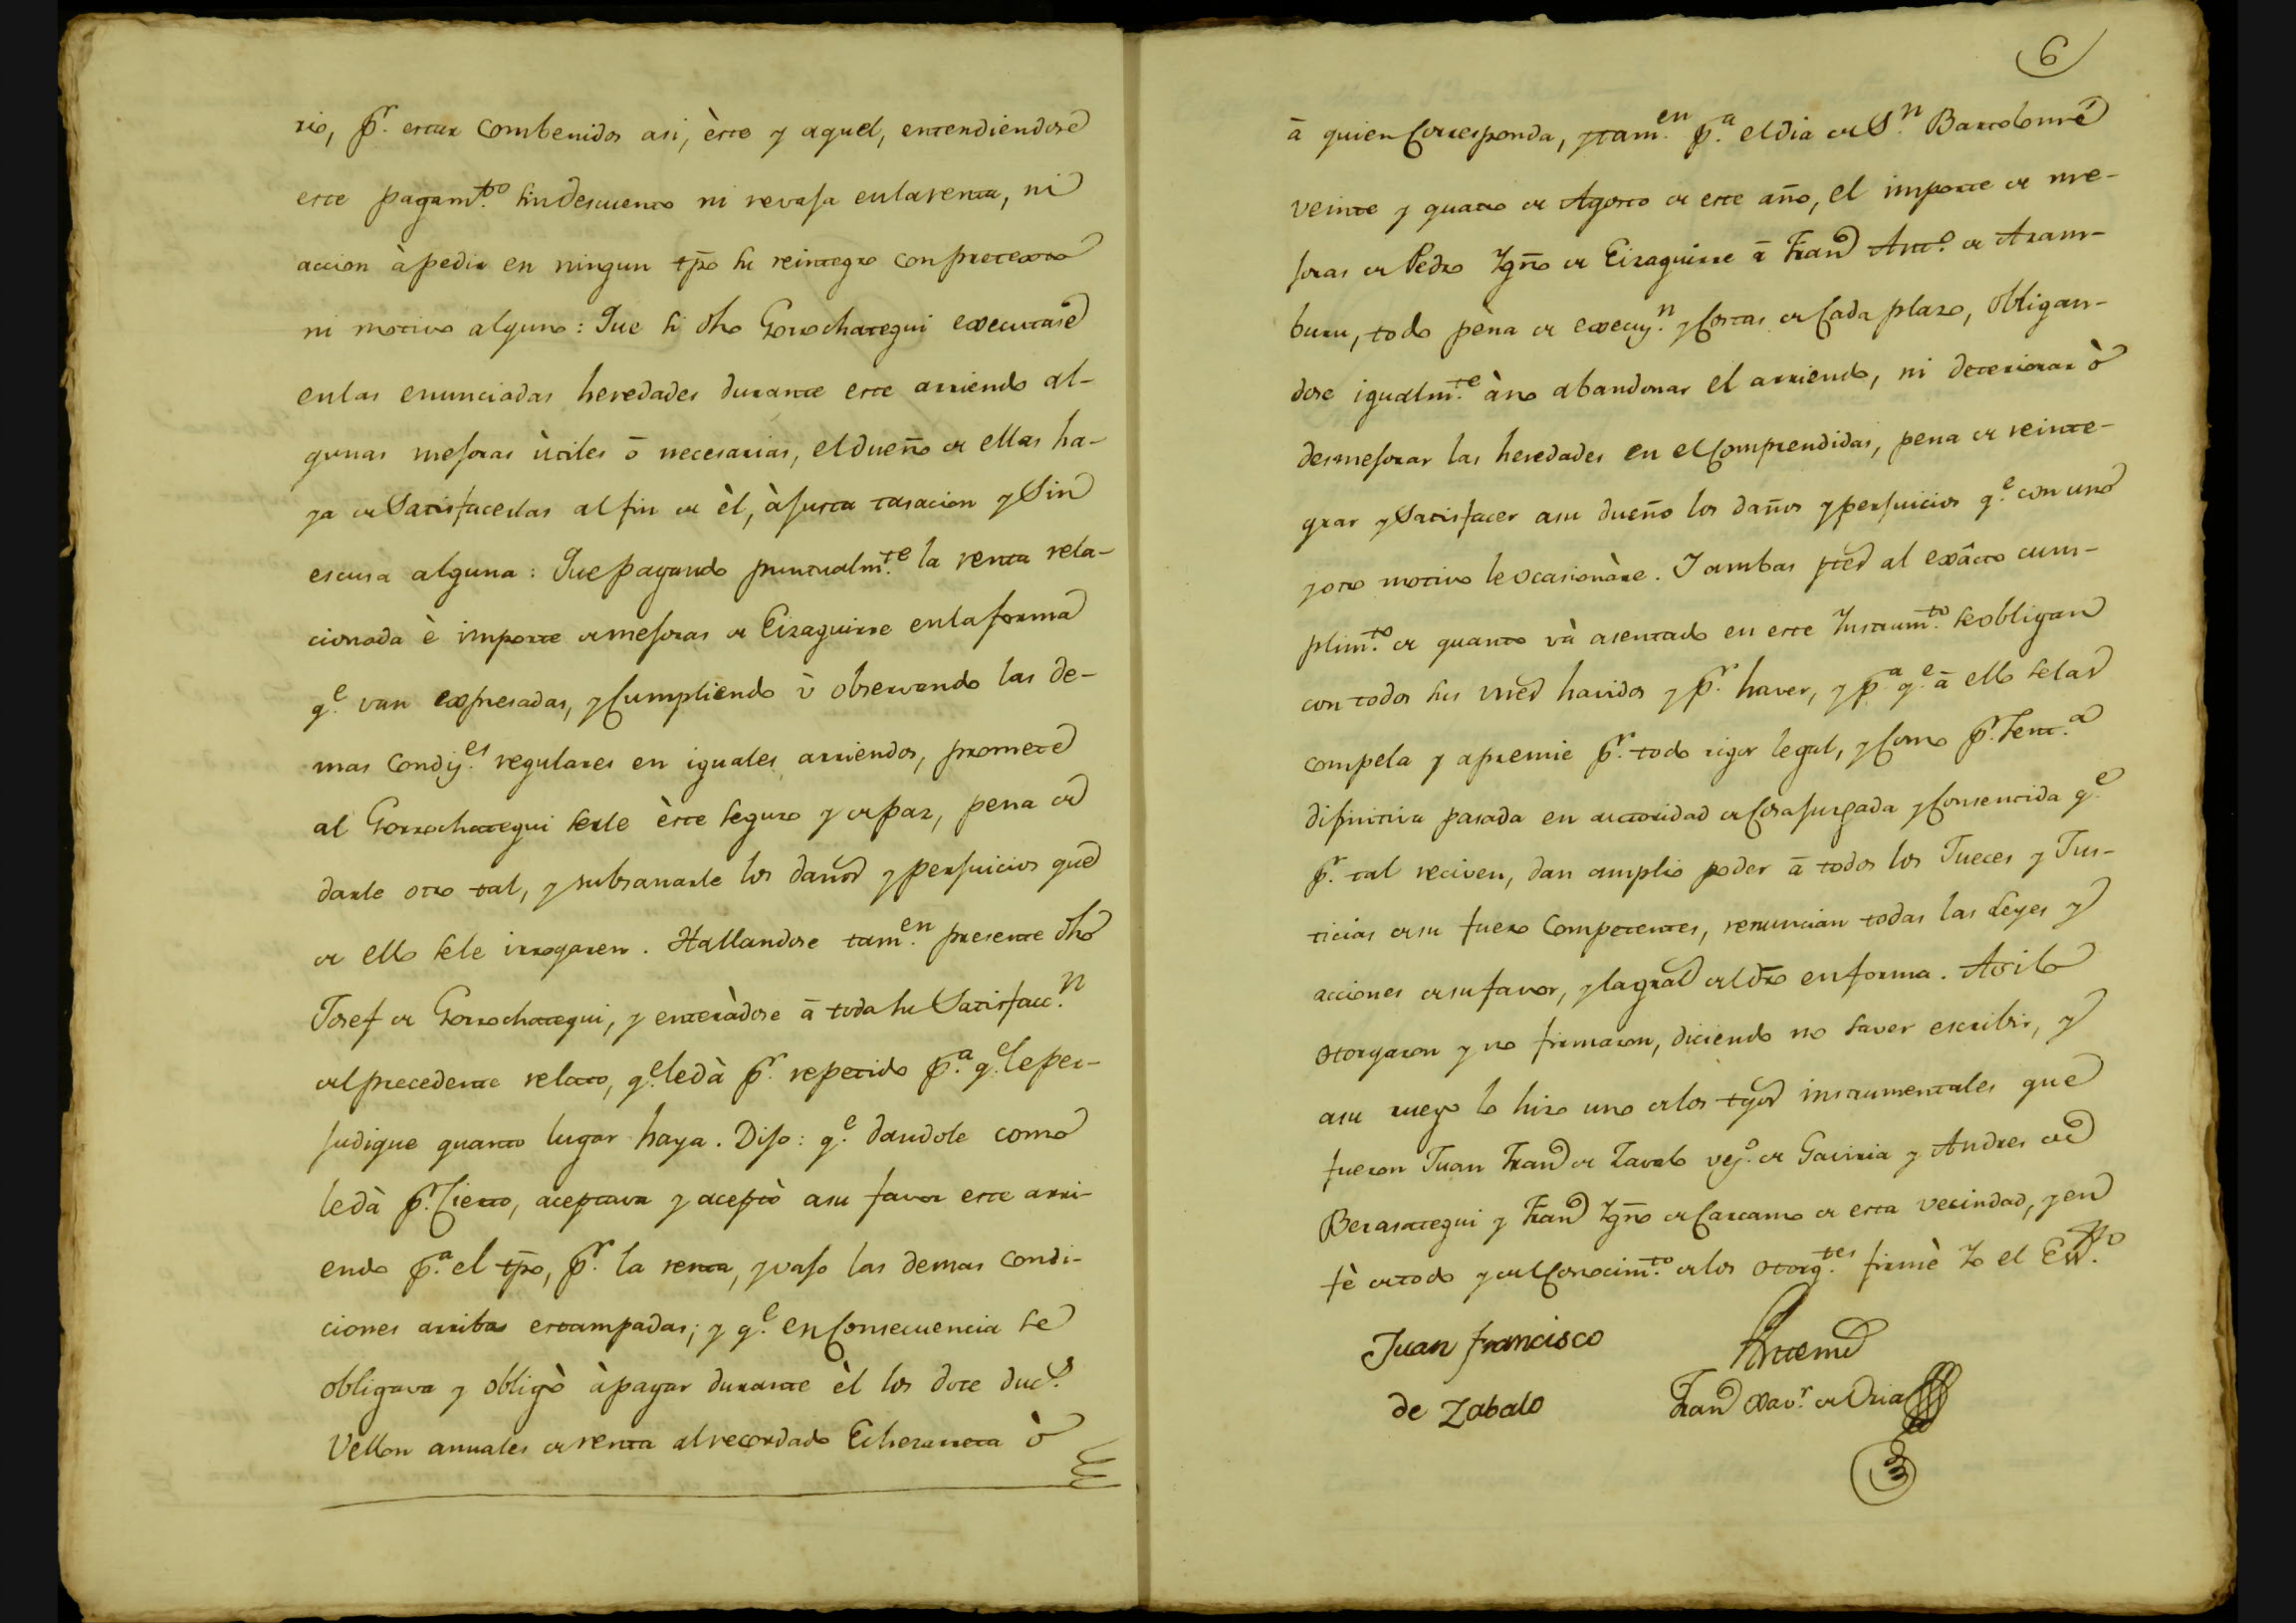 rio, pr. estar combenidos asi, èste y aquel, entendiendose
este pagamto. sin descuento ni revaja en la renta, ni
accion à pedir en ningun tpo su reintegro con pretexto
ni motivo alguno: Que si dho Gorrochategui executase
en las enunciadas heredades durante este arriendo al-
gunas mejoras ùtiles ō necesarias, el dueño de ellas ha-
ya de Satisfacerlas al fin de èl, à justa tasacion y Sin
escusa alguna: Que pagando puntualmte. la renta rela-
cionada è importe de mejoras de Eizaguirre en la forma
qe. van expresadas, y cumpliendo ù observando las de-
mas condies. regulares en iguales arriendos, promete
al Gorrochategui serle èste seguro y de paz, pena de
darle otro tal, y subsanarle los daños y perjuicios que
de ello se le irrogaren. Hallandose tamen. presente dho
Josef de Gorrochategui, y enteràdose ā toda su Satisfacc.n
del precedente relato, qe. le dà pr. repetido pa. qe. le per-
judique quanto lugar haya. Dijo: qe. dandole como
le dà pr. Cierto, aceptava y aceptò a su favor este arri-
endo pa. el tpo, pr. la renta, y vajo las demas condi-
ciones arriba estampadas; y qe. en Consecuencia se
obligava y obligò à pagar durante èl los doce ducs.
Vellon anuales de renta al recordado Echezarreta ò
6
ā quien Corresponda, y tamen. pa. el dia de Sn. Bartolomé
veinte y quatro de Agosto de este año, el importe de me-
joras de Pedro Ygno de Eizaguirre ā Fran.co Anto. de Aram-
buru, todo pèna de execun. y Costas de Cada plazo, obligan-
dose igualmte. à no abandonar el arriendo, ni deteriorar ò
desmejorar las heredades en el Comprendidas, pena de reinte-
grar y Satisfacer a su dueño los daños y perjuicios qe. con uno
y otro motivo le ocasionàre. Y ambas ptes al exâcto cum-
plimto. de quanto và asentado en este Instrumto. se obligan
con todos sus vnes havidos y pr. haver, y pa. qe. ā ello se las
compela y apremie pr. todo rigor legal, y Como pr. Senta.
difinitiva pasada en autoridad de Cosa juzgada y Consentida qe.
pr. tal reciven, dan amplio poder ā todos los Jueces y Jus-
ticias de su fuero Competentes, renuncian todas las Leyes y
acciones de su favor, y la gral del dro en forma. Asi lo
otorgaron y no firmaron, diciendo no saver escribir, y
a su ruego lo hizo uno de los tgos instrumentales que
fueron Juan Fran.co de Zavalo veo. de Gaviria y Andres de
Berasategui y Fran.co Ygno de Carcamo de esta vecindad, y en
fè de todo y del Conocimto. de los otorgtes. firmè Yo el Essno.
Juan francisco
de Zabalo
Antemi
Fran.co Xavr. de Oria